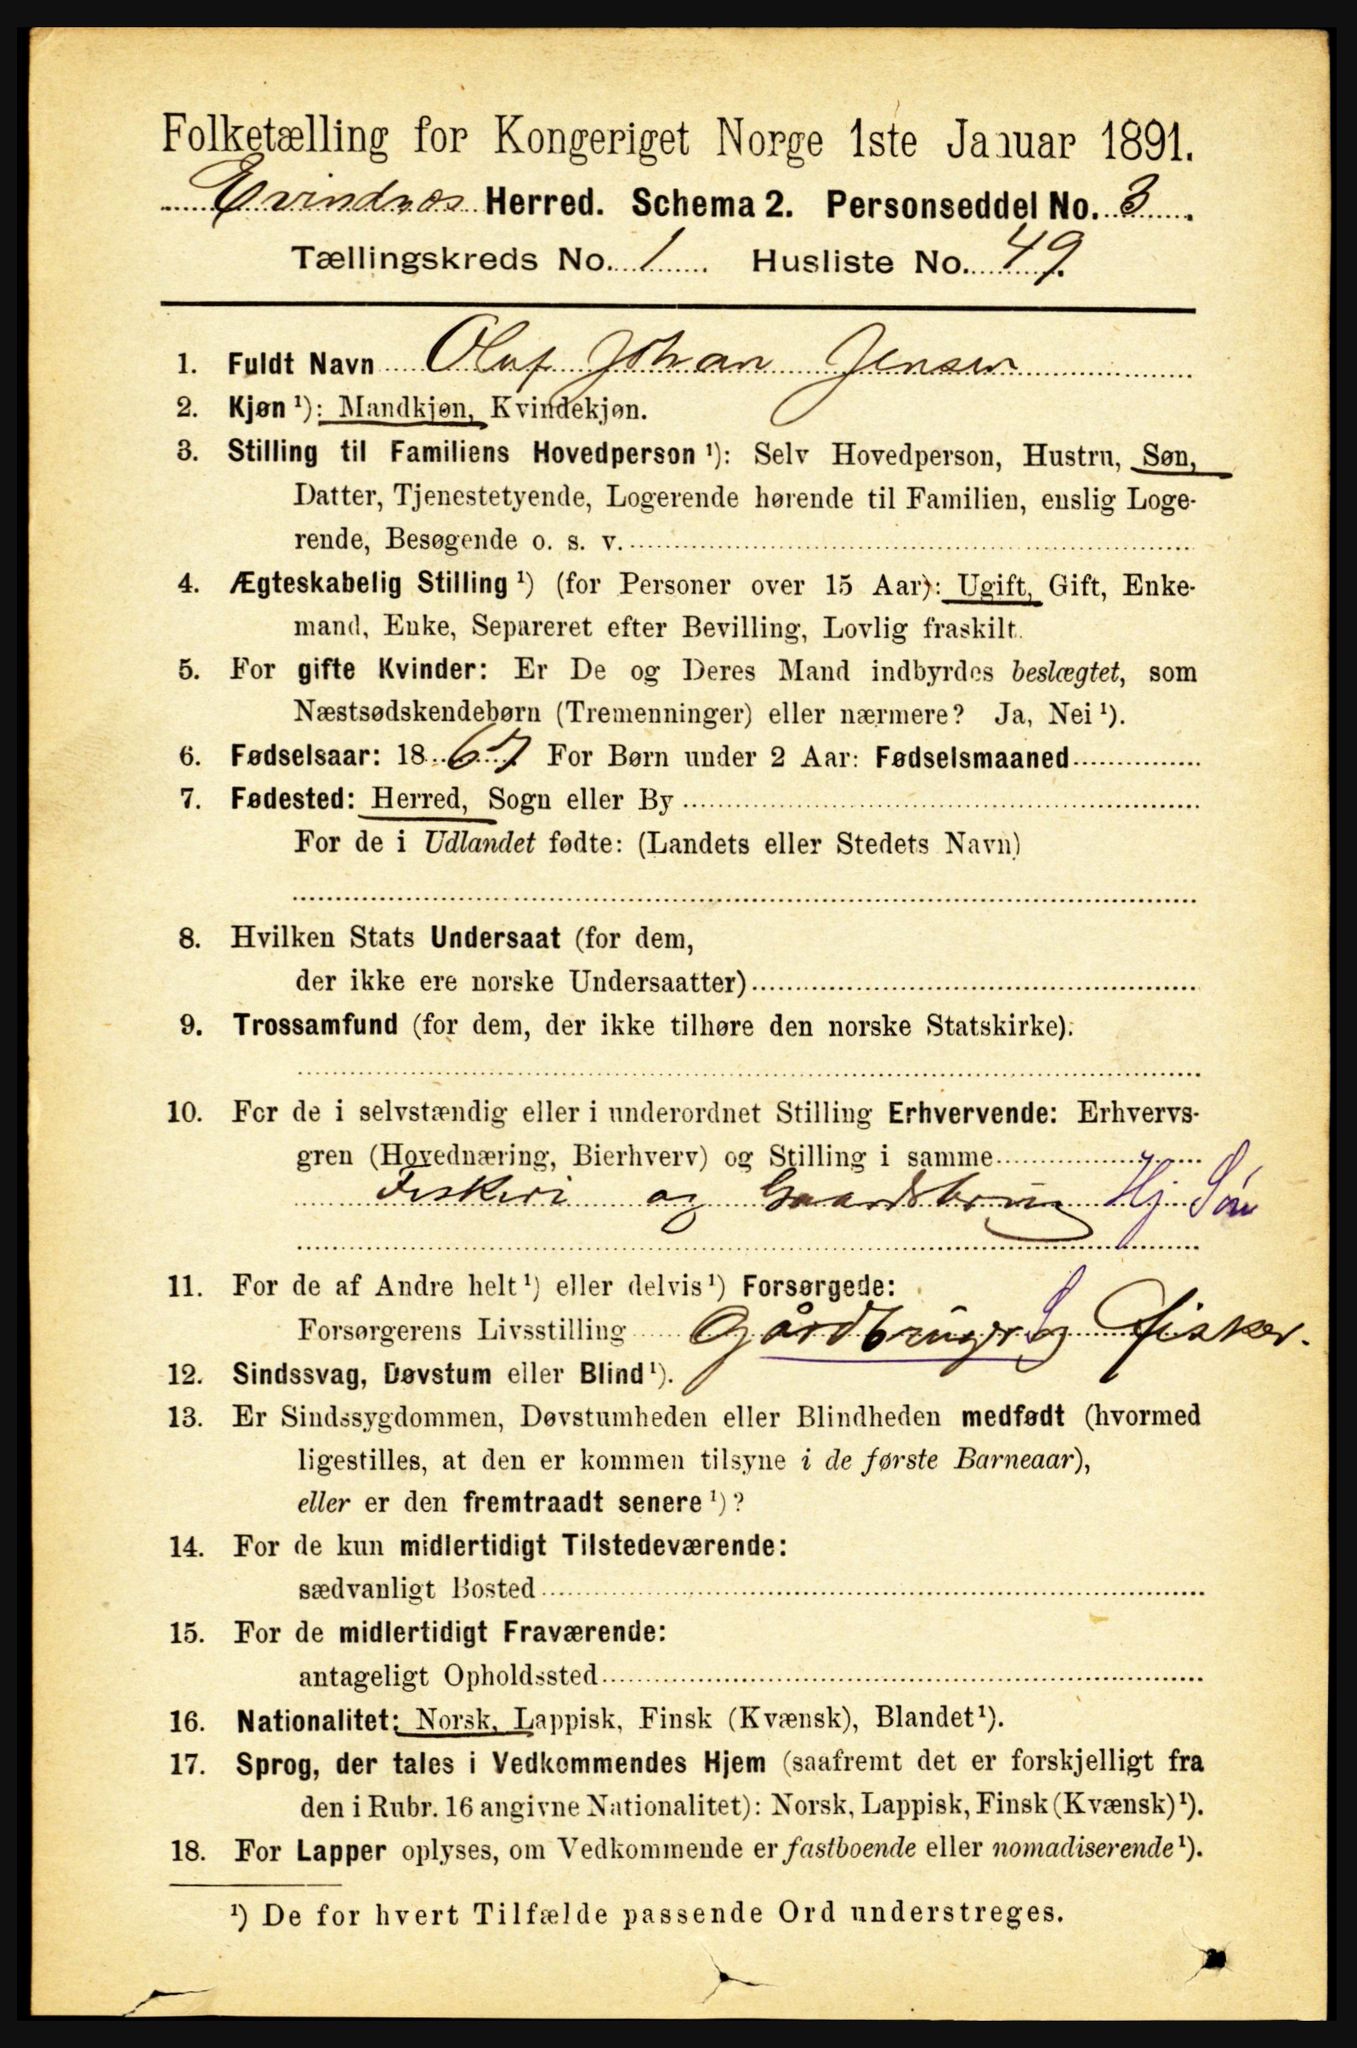 Folketælling for Kongeriget Norge 1ste Januar 1891.
Evindnæs Herred. Schema 2. Personseddel No. 3.
Tællingskreds No. 1 Husliste No. 49.
1. Fuldt Navn Oluf Johan Jensen
2. Kjøn ¹): Mandkjøn, Kvindekjøn.
3. Stilling til Familiens Hovedperson ¹): Selv Hovedperson, Hustru, Søn,
Datter, Tjenestetyende, Logerende hørende til Familien, enslig Loge-
rende, Besøgende o. s. v.
4. Ægteskabelig Stilling ¹) (for Personer over 15 Aar): Ugift, Gift, Enke-
mand, Enke, Separeret efter Bevilling, Lovlig fraskilt.
5. For gifte Kvinder: Er De og Deres Mand indbyrdes beslægtet, som
Næstsødskendebørn (Tremenninger) eller nærmere? Ja, Nei ¹).
6. Fødselsaar: 1867 For Børn under 2 Aar: Fødselsmaaned
7. Fødested: Herred, Sogn eller By
For de i Udlandet fødte: (Landets eller Stedets Navn)
8. Hvilken Stats Undersaat (for dem,
der ikke ere norske Undersaatter)
9. Trossamfund (for dem, der ikke tilhøre den norske Statskirke).
10. For de i selvstændig eller i underordnet Stilling Erhvervende: Erhvervs-
gren (Hovednæring, Bierhverv) og Stilling i samme
Fiskeri og Gaardsbrug Hj Søn
11. For de af Andre helt ¹) eller delvis ¹) Forsørgede:
Forsørgerens Livsstilling Gårdbruger og Fisker.
12. Sindssvag, Døvstum eller Blind ¹).
13. Er Sindssygdommen, Døvstumheden eller Blindheden medfødt (hvormed
ligestilles, at den er kommen tilsyne i de første Barneaar),
eller er den fremtraadt senere ¹)?
14. For de kun midlertidigt Tilstedeværende:
sædvanligt Bosted
15. For de midlertidigt Fraværende:
antageligt Opholdssted
16. Nationalitet: Norsk, Lappisk, Finsk (Kvænsk), Blandet ¹).
17. Sprog, der tales i Vedkommendes Hjem (saafremt det er forskjelligt fra
den i Rubr. 16 angivne Nationalitet): Norsk, Lappisk, Finsk (Kvænsk) ¹).
18. For Lapper oplyses, om Vedkommende er fastboende eller nomadiserende ¹).
¹) De for hvert Tilfælde passende Ord understreges.